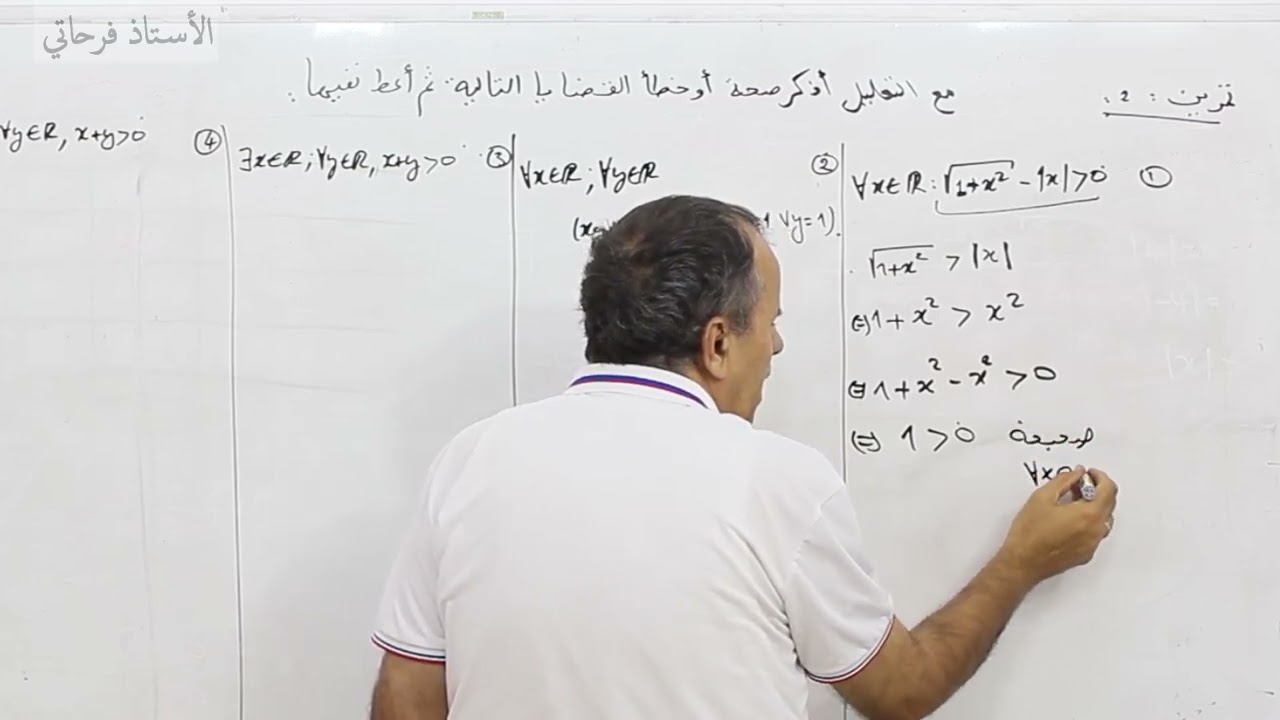 الأستاذ فرحاتي
تمرين : 2 .
مع التعليل أذكر صحة أو خطأ القضايا التالية. ثم أعط نفيها .
① ∀x∈ℝ : √(1+x²) - |x| > 0
√(1+x²) > |x|
⇔ 1 + x² > x²
⇔ 1 + x² - x² > 0
⇔ 1 > 0 صحيحة
∀x
② ∀x∈ℝ ; ∀y∈ℝ
(x 1 ∨ y=1).
③ ∃x∈ℝ ; ∀y∈ℝ, x+y > 0
④ ∀y∈ℝ, x+y > 0